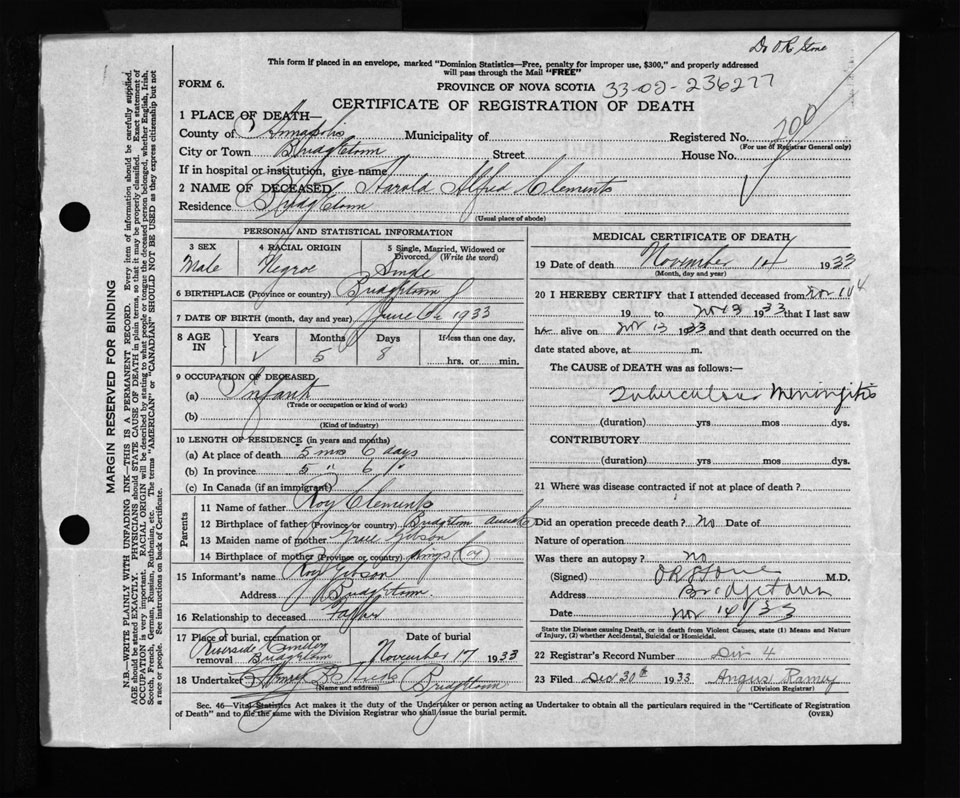 Dr O R Stone
This form if placed in an envelope, marked "Dominion Statistics—Free, penalty for improper use, $300," and properly addressed
will pass through the Mail "FREE"
FORM 6.
PROVINCE OF NOVA SCOTIA 33-02-236277
CERTIFICATE OF REGISTRATION OF DEATH
1 PLACE OF DEATH—
County of Annapolis Municipality of Registered No.
(For use of Registrar General only)
City or Town Bridgetown Street House No.
If in hospital or institution, give name
2 NAME OF DECEASED Harold Alfred Clements
Residence Bridgetown
(Usual place of abode)
PERSONAL AND STATISTICAL INFORMATION
3 SEX 4 RACIAL ORIGIN 5 Single, Married, Widowed or Divorced. (Write the word)
Male Negroe Single
6 BIRTHPLACE (Province or country) Bridgetown
7 DATE OF BIRTH (month, day and year) June 1933
8 AGE IN Years Months Days If less than one day,
5 8 hrs. or min.
9 OCCUPATION OF DECEASED
(a) Infant
(Trade or occupation or kind of work)
(b)
(Kind of industry)
10 LENGTH OF RESIDENCE (in years and months)
(a) At place of death 5 mos 6 days
(b) In province 5 " 6 "
(c) In Canada (if an immigrant)
Parents
11 Name of father Roy Clements
12 Birthplace of father (Province or country) Bridgetown
13 Maiden name of mother Gibson
14 Birthplace of mother (Province or country) Kings Co
15 Informant's name Roy Gibson
Address Bridgetown
16 Relationship to deceased Father
17 Place of burial, cremation or removal Date of burial
Riverside Bridgetown November 17 1933
18 Undertaker Bridgetown
(Name and address)
MEDICAL CERTIFICATE OF DEATH
19 Date of death November 14 1933
(Month, day and year)
20 I HEREBY CERTIFY that I attended deceased from Nov
19 to Nov 13 1933 that I last saw
h alive on Nov 13 1933 and that death occurred on the
date stated above, at m.
The CAUSE of DEATH was as follows:—
Tuberculous Meningitis
(duration) yrs mos dys.
CONTRIBUTORY
(duration) yrs mos dys.
21 Where was disease contracted if not at place of death?
Did an operation precede death? No Date of
Nature of operation
Was there an autopsy? no
(Signed) O R Stone M.D.
Address Bridgetown
Date Nov 14/33
State the Disease causing Death, or in death from Violent Causes, state (1) Means and Nature
of Injury, (2) whether Accidental, Suicidal or Homicidal.
22 Registrar's Record Number Div 4
23 Filed Dec 30th 1933 Angus Ramey
(Division Registrar)
Sec. 46—Vital Statistics Act makes it the duty of the Undertaker or person acting as Undertaker to obtain all the particulars required in the "Certificate of Registration
of Death" and to file the same with the Division Registrar who shall issue the burial permit. (OVER)
MARGIN RESERVED FOR BINDING
N.B.—WRITE PLAINLY WITH UNFADING INK—THIS IS A PERMANENT RECORD. Every item of information should be carefully supplied.
AGE should be stated EXACTLY. PHYSICIANS should STATE CAUSE OF DEATH in plain terms, so that it may be properly classified. Exact statement of
OCCUPATION is very important. RACIAL ORIGIN will be described by stating to what people or tongue the deceased person belonged, whether English, Irish,
Scotch, French, German, Russian, Ruthenian, etc. The terms "AMERICAN" or "CANADIAN" SHOULD NOT BE USED as they express citizenship but not
a race or people. See instructions on back of Certificate.